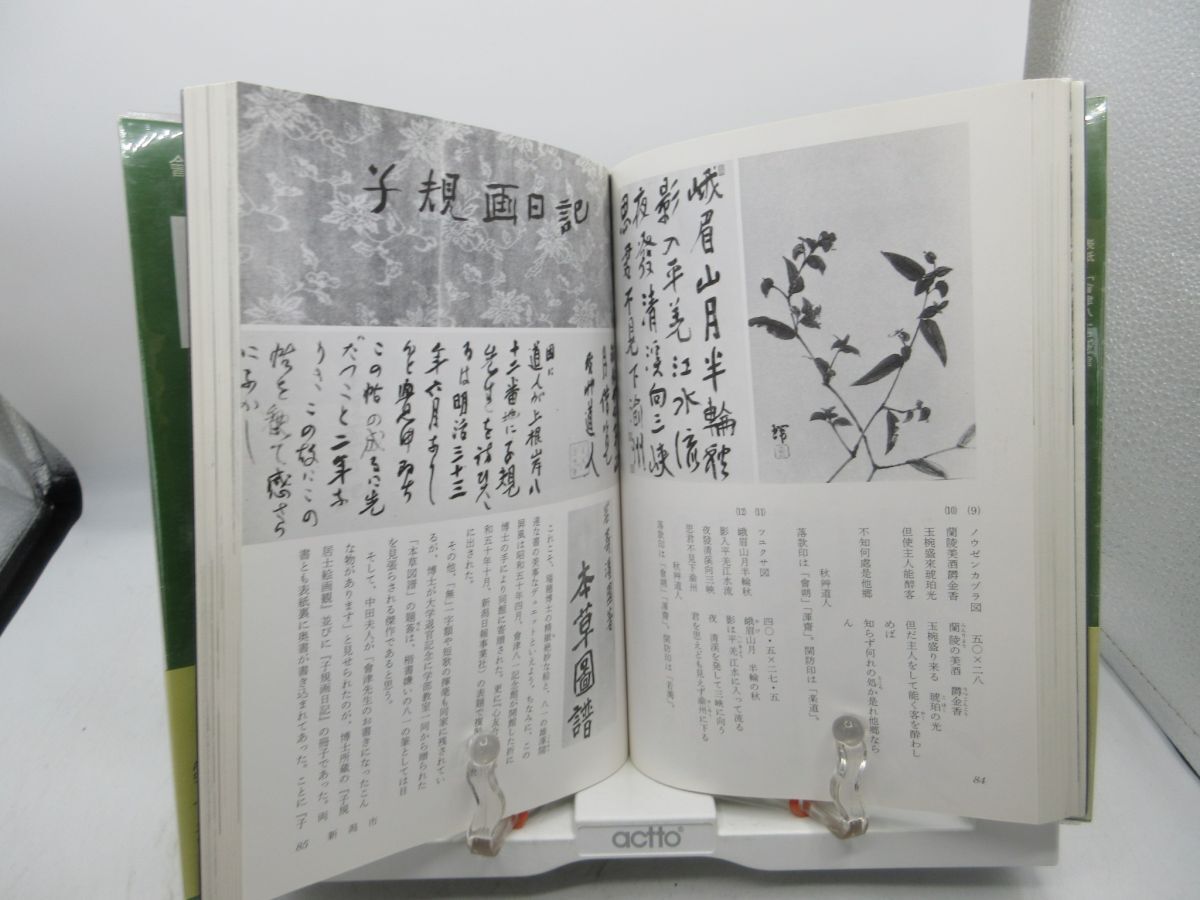 峨眉山月半輪秋
影入平羌江水流
夜發清溪向三峡
思君不見下渝州
(9)
ノウゼンカヅラ図
五〇×二八
(10)
蘭陵美酒欝金香
蘭陵の美酒 欝金香
玉椀盛來琥珀光
玉椀盛り来る 琥珀の光
但使主人能酔客
但だ主人をして能く客を酔わし
めば
不知何處是他郷
知らず何れの処か是れ他郷なら
ん
秋艸道人
落款印は「會朔」「渾齋」。関防印は「楽道」。
(11)
ツユクサ図
四〇・五×二七・五
(12)
峨眉山月半輪秋
峨眉山月 半輪の秋
影入平羌江水流
影は平羌 江水に入って流る
夜發清溪向三峽
夜 清渓を発して三峡に向う
思君不見下渝州
君を思えども見えず渝州に下る
秋艸道人
落款印は「會朔」「渾齋」。関防印は「若萬」。
84
子規画日記
秋艸道人
因に
道人が上根岸八
十二番地に子規
先生を訪ひた
るは明治三十三
年六月なし
この帖の成るに先
だつこと二年な
りきこの故にこの
帖を
て感さら
にふかし
本草圖譜
これこそ、
博士の精緻絶妙な絵と、八一の雄渾闊
達な書の美事なデュエットといえよう。ちなみに、この
屏風は昭和五十年四月、會津八一記念館が開館した折に
博士の手により同館に寄贈された。更に『心友
和五十年十月、新潟日報事業社）の表題で複
に出された。
その他、「無」一字額や短歌の揮毫も同家に残されてい
るが、博士が大学退官記念に学部教室一同から贈られた
『本草図譜』の題簽は、楷書嫌いの八一の筆としては目
を見張らされる傑作であると思う。
そして、中田夫人が「會津先生のお書きになったこん
な物があります」と見せられたのが、博士所蔵の『子規
居士絵画観』並びに『子規画日記』の冊子であった。両
書とも表紙裏に奥書が書き込まれてあった。ことに『子
85
actto